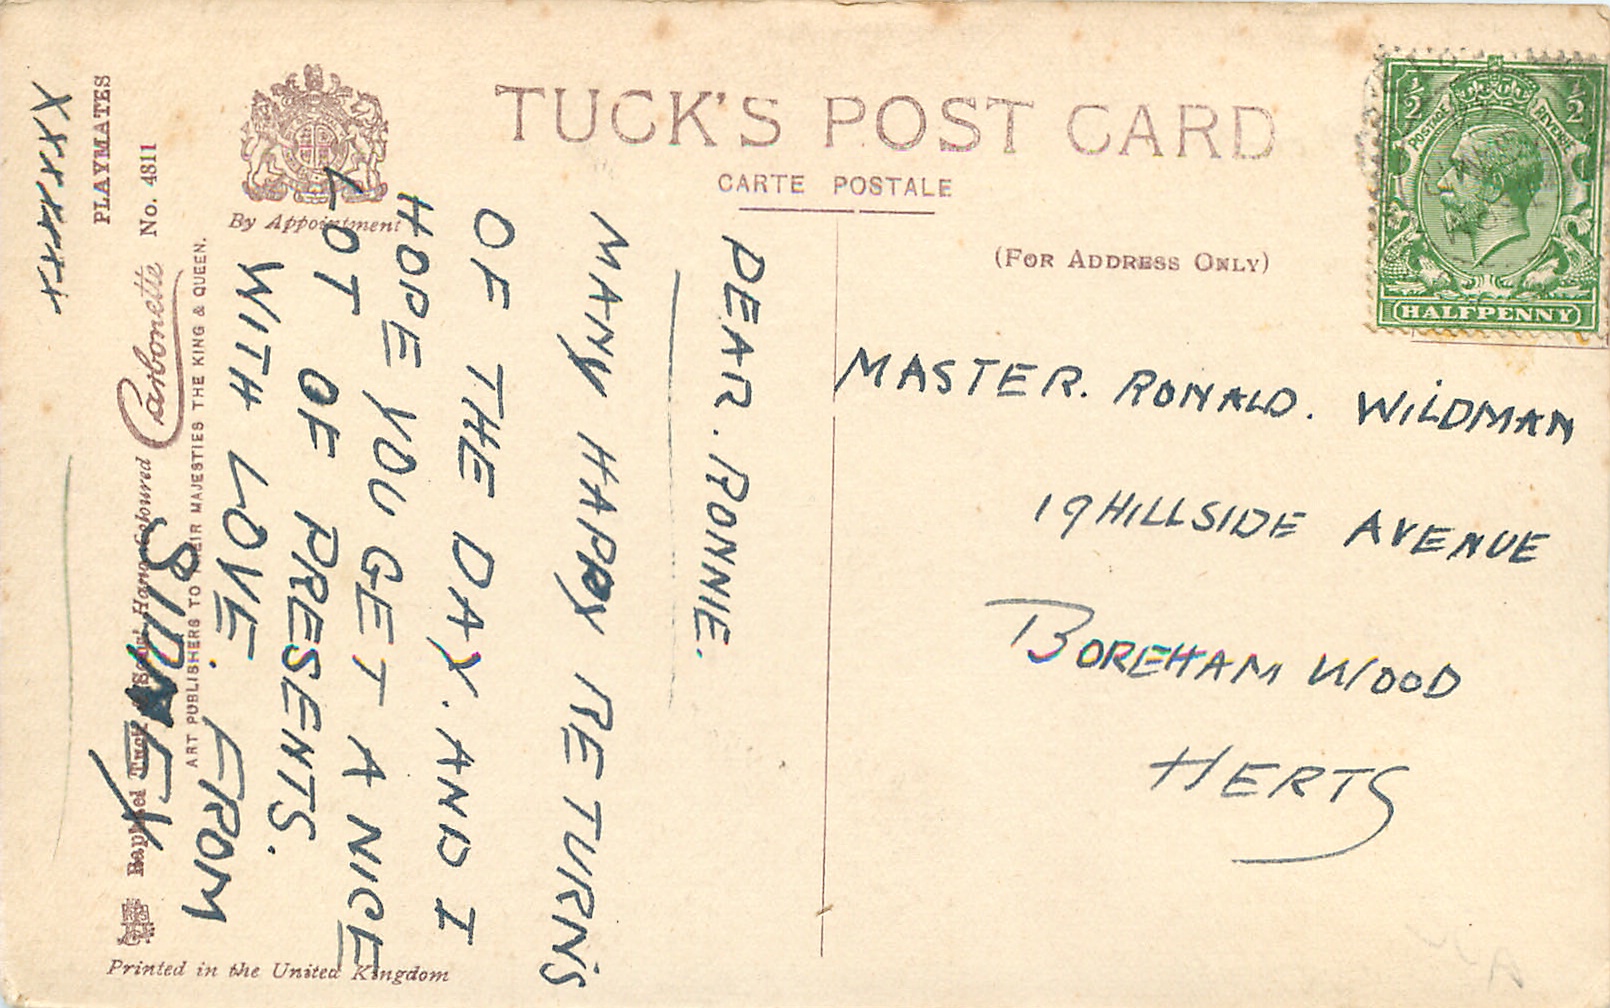 TUCK'S POST CARD
CARTE POSTALE
(FOR ADDRESS ONLY)
By Appointment
½ ½
POSTAGE REVENUE
HALFPENNY
MASTER. RONALD. WILDMAN
19 HILLSIDE AVENUE
BOREHAM WOOD
HERTS
DEAR. RONNIE.
MANY HAPPY RETURNS
OF THE DAY. AND I
HOPE YOU GET A NICE
LOT OF PRESENTS.
WITH LOVE. FROM
SIDNEY
XXXXXXX
PLAYMATES
No. 4811
Raphael Tuck & Sons' Hand-Coloured Carbonette
ART PUBLISHERS TO THEIR MAJESTIES THE KING & QUEEN.
Printed in the United Kingdom